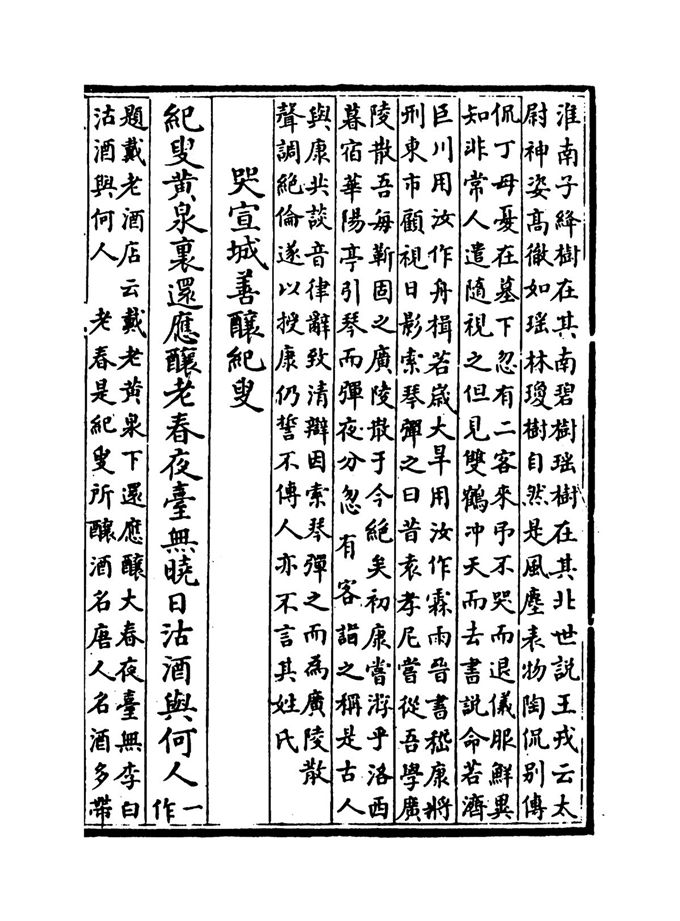 淮南子絳樹在其南碧樹瑶樹在其北世説王戎云太
尉神姿髙徹如瑶林瓊樹自然是風塵表物陶侃别傳
侃丁母憂在墓下忽有二客來弔不哭而退儀服鮮異
知非常人遣隨視之但見雙鶴冲天而去書説命若濟
巨川用汝作舟楫若嵗大旱用汝作霖雨晉書嵇康將
刑東市顧視日影索琴彈之曰昔袁孝尼嘗從吾學廣
陵散吾每靳固之廣陵散于今絶矣初康嘗游乎洛西
暮宿華陽亭引琴而彈夜分忽有客詣之稱是古人
與康共談音律辭致清辯因索琴彈之而為廣陵散
聲調絶倫遂以授康仍誓不傳人亦不言其姓氏
哭宣城善釀紀叟
紀叟黄泉裏還應釀老春夜臺無曉日沽酒與何人一作
題戴老酒店云戴老黄泉下還應釀大春夜臺無李白
沽酒與何人 老春是紀叟所釀酒名唐人名酒多帶